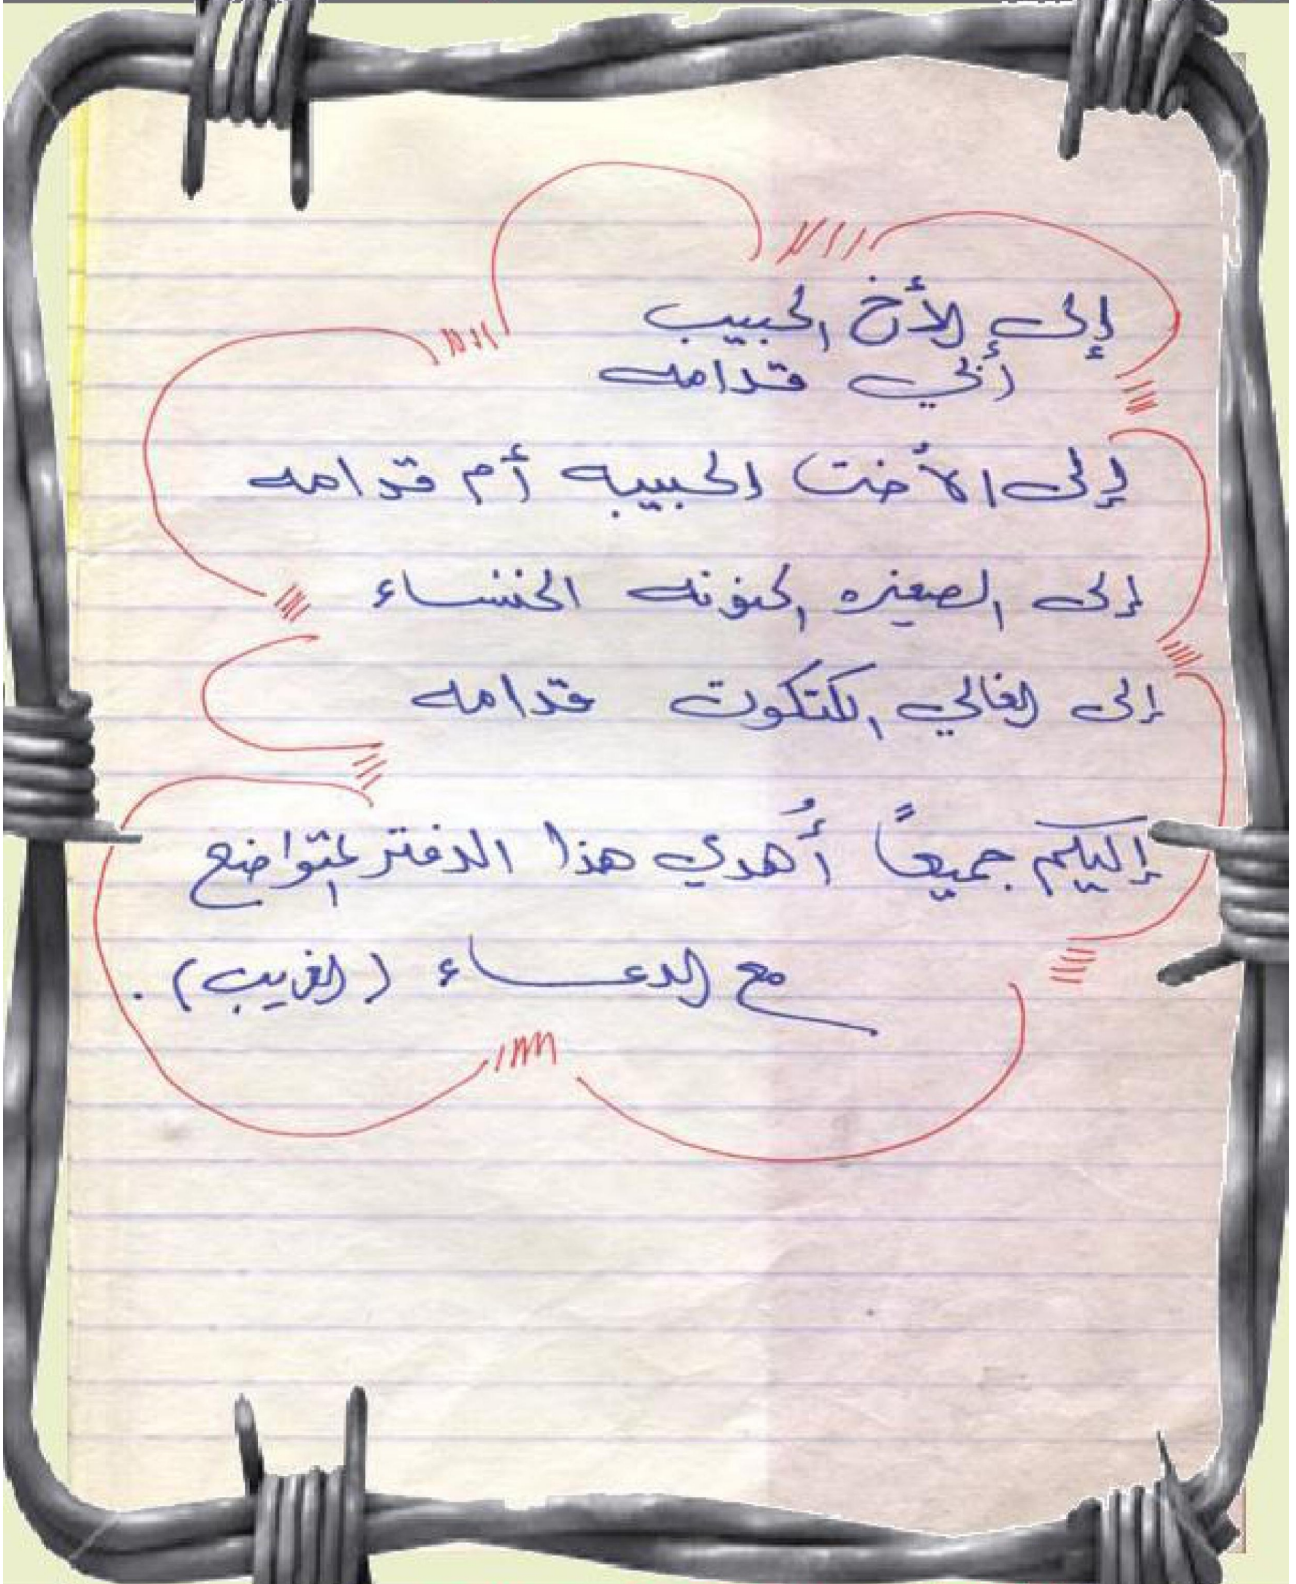 إلى الأخ الحبيب
أخي قدامه
إلى الأخت الحبيبه أم قدامه
إلى الصغيره الحنونه الخنساء
إلى الغالي الكتكوت قدامه
إليكم جميعاً أُهدي هذا الدفتر المتواضع
مع الدعاء (الغريب).